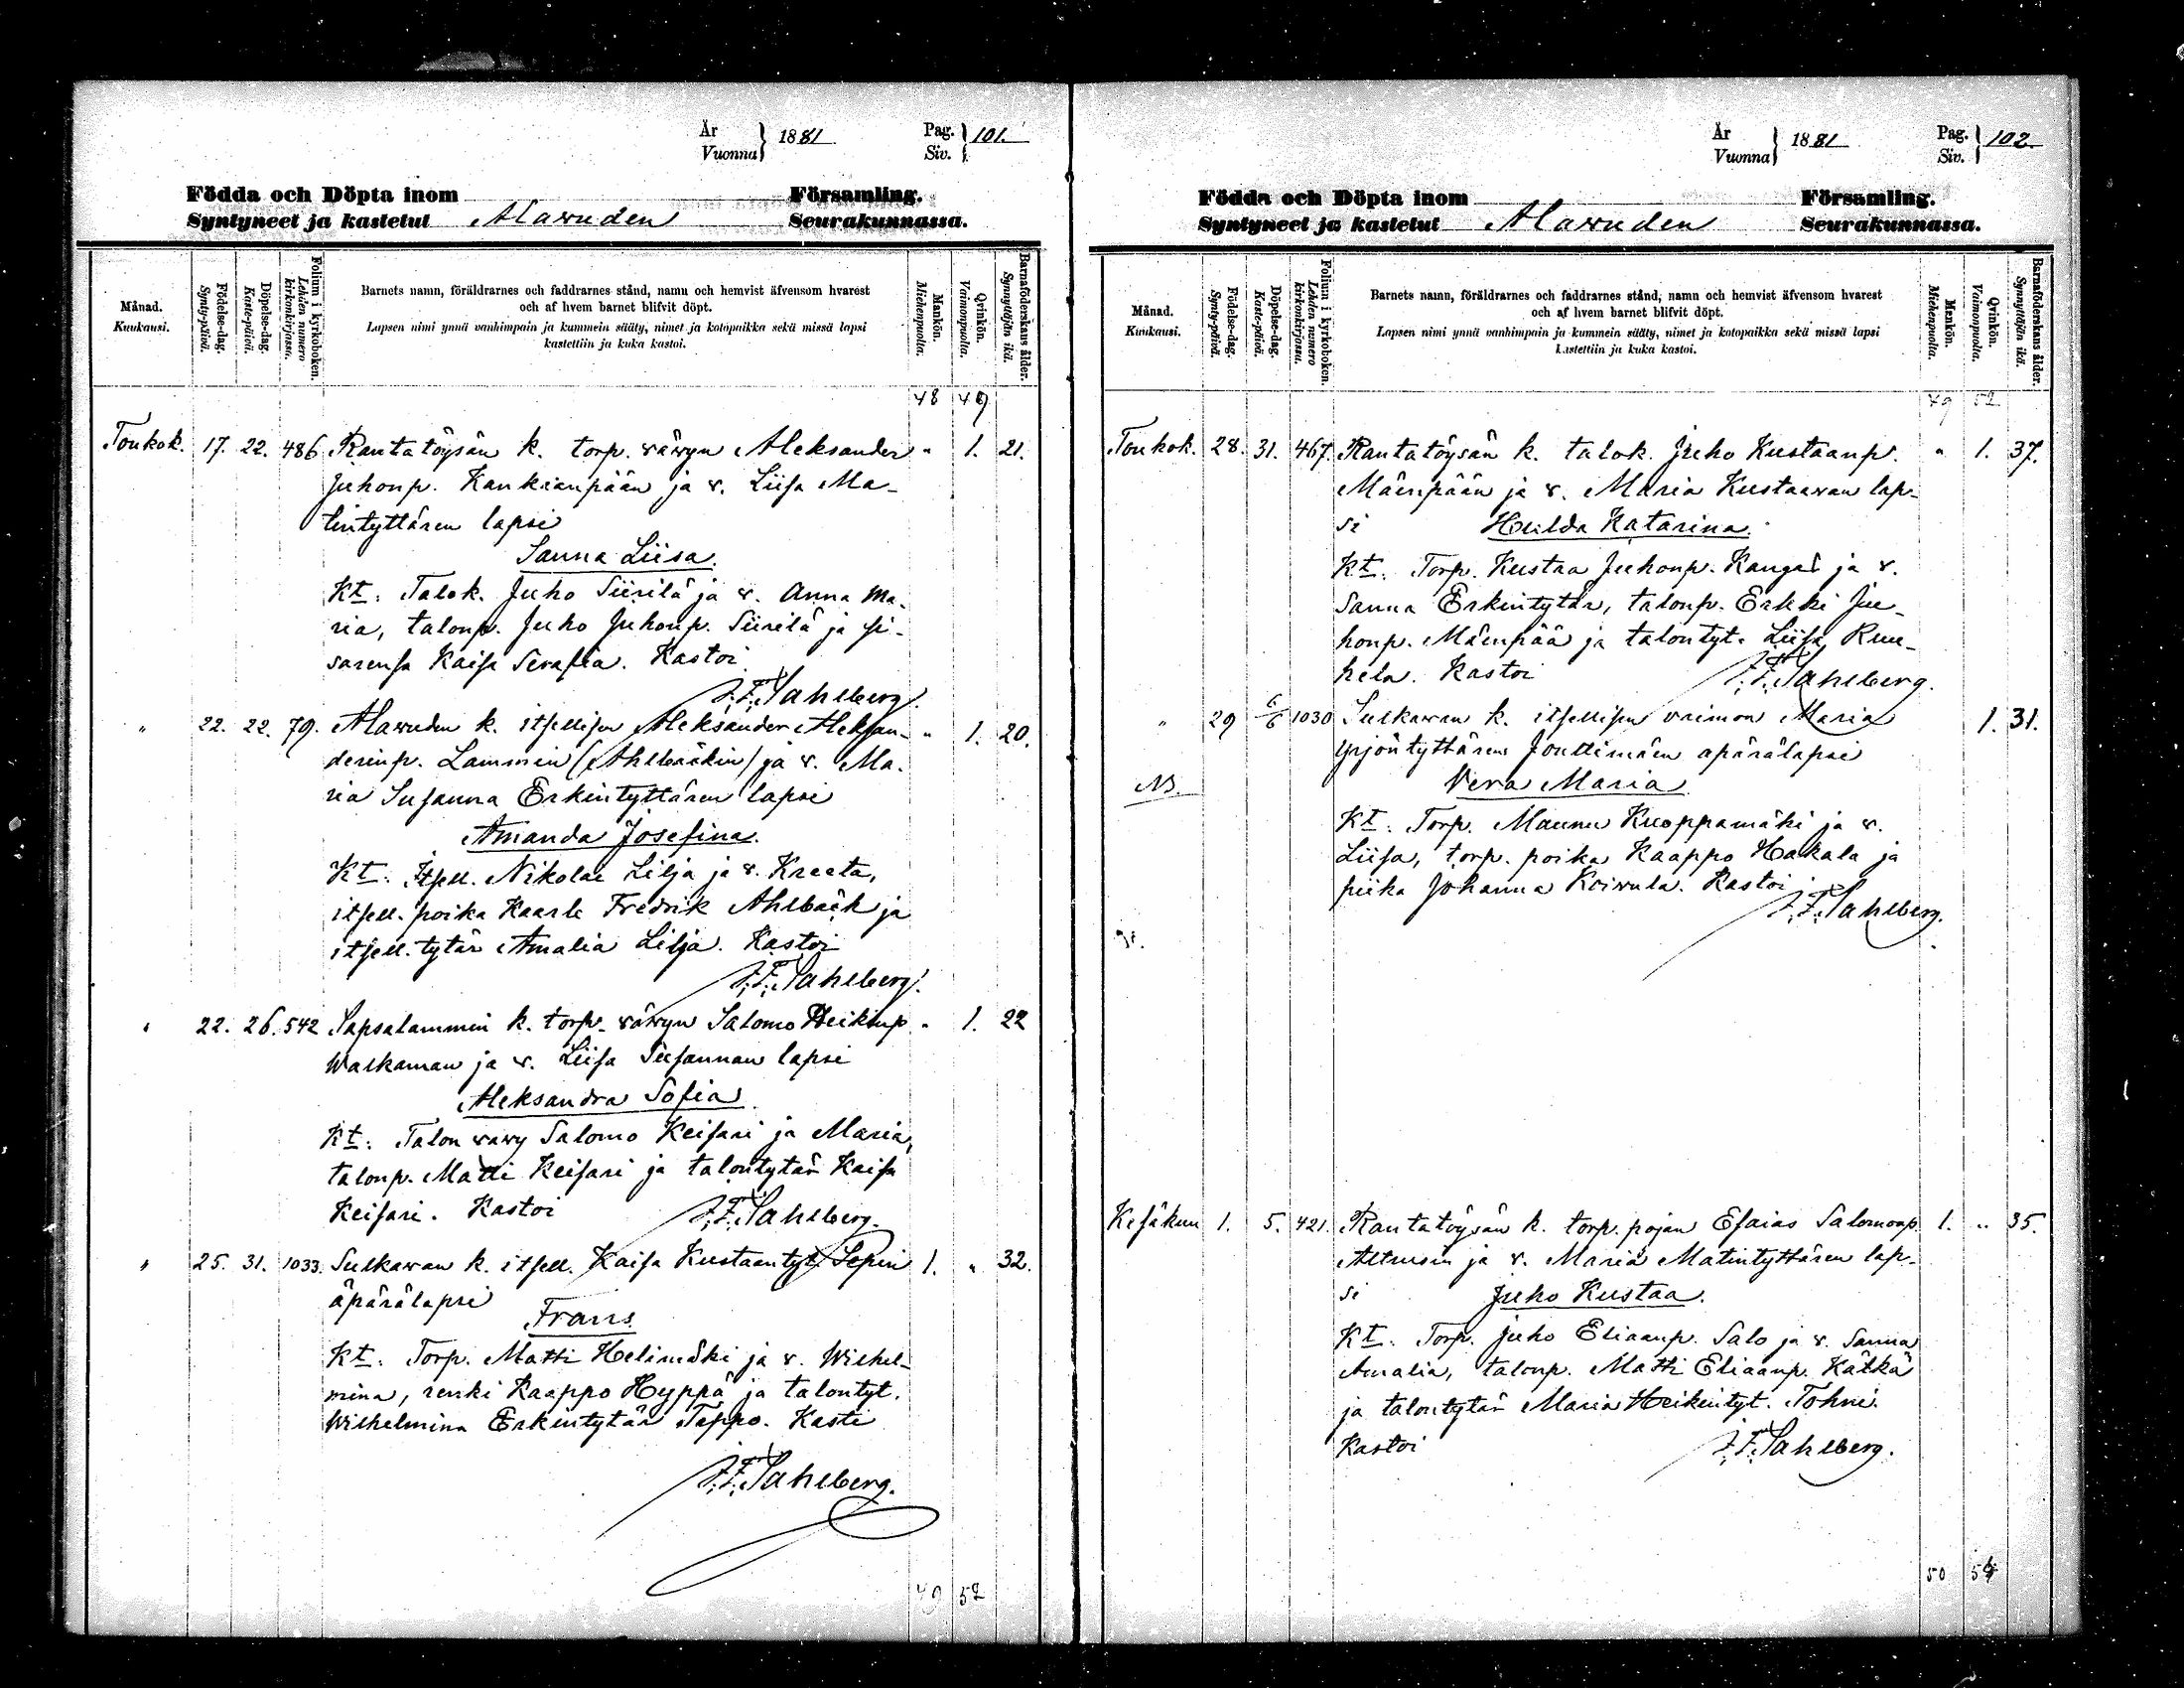 År
Vuonna } 1881
Pag.
Siv. } 101.
Födda och Döpta inom Församling.
Syntyneet ja kastetut Alavuden Seurakunnassa.
Månad.
Kuukausi.
Födelse-dag.
Synty-päivä.
Döpelse-dag.
Kaste-päivä.
Folium i kyrkoboken.
Lehden numero kirkonkirjassa.
Barnets namn, föräldrarnes och faddrarnes stånd, namn och hemvist äfvensom hvarest
och af hvem barnet blifvit döpt.
Lapsen nimi ynnä vanhimpain ja kummein sääty, nimet ja kotopaikka sekä missä lapsi
kastettiin ja kuka kastoi.
Mankön.
Miehenpuolta.
Qvinkön.
Vaimonpuolta.
Barnaföderskans ålder.
Synnyttäjän ikä.
48 49
Toukok. 17. 22. 486 Rantatöysän k. torp. vävyn Aleksander " 1. 21.
Juhonp. Kankianpään ja v. Liisa Ma-
tintyttären lapsi
Sanna Liisa.
Kt: Talok. Juho Siirilä ja v. Anna Ma-
ria, talonp. Juho Juhonp. Siirilä ja si-
sarensa Kaisa Serafia. Kastoi
J. F. Sahlberg.
" 22. 22. 79. Alavuden k. itsellisen Aleksander Aleksan- " 1. 20.
derinp. Lammin (Ahlbäckin) ja v. Ma-
ria Susanna Erkintyttären lapsi
Amanda Josefina.
Kt: Itsell. Nikolai Lilja ja v. Kreeta,
itsell. poika Kaarle Fredrik Ahlbäck ja
itsell. tytär Amalia Lilja. Kastoi
J. F. Sahlberg.
" 22. 26. 542 Sapsalammin k. torp. vävyn Salomo Heikinp. " 1. 22
Walkaman ja v. Liisa Susannan lapsi
Aleksandra Sofia.
Kt: Talon vävy Salomo Keisari ja Maria,
talonp. Matti Keisari ja talontytär Kaisa
Keisari. Kastoi J. F. Sahlberg.
" 25. 31. 1033. Sulkavan k. itsell. Kaisa Kustaantyt. Sepin 1. " 32.
äpärälapsi
Frans.
Kt: Torp. Matti Helimäki ja v. Wilhel-
mina, renki Kaappo Hyppä ja talontyt.
Wilhelmina Erkintytär Tappo. Kasti
J. F. Sahlberg.
49 52
År
Vuonna } 1881
Pag.
Siv. } 102.
Födda och Döpta inom Församling.
Syntyneet ja kastetut Alavuden Seurakunnassa.
Månad.
Kuukausi.
Födelse-dag.
Synty-päivä.
Döpelse-dag.
Kaste-päivä.
Folium i kyrkoboken.
Lehden numero kirkonkirjassa.
Barnets namn, föräldrarnes och faddrarnes stånd, namn och hemvist äfvensom hvarest
och af hvem barnet blifvit döpt.
Lapsen nimi ynnä vanhimpain ja kummein sääty, nimet ja kotopaikka sekä missä lapsi
kastettiin ja kuka kastoi.
Mankön.
Miehenpuolta.
Qvinkön.
Vaimonpuolta.
Barnaföderskans ålder.
Synnyttäjän ikä.
49 52
Toukok. 28. 31. 467. Rantatöysän k. talok. Juho Kustaanp. " 1. 37.
Mäenpään ja v. Maria Kustaavan lap-
si Hulda Katarina.
Kt: Torp. Kustaa Juhonp. Kangas ja v.
Sanna Erkintytär, talonp. Erkki Ju-
honp. Mäenpää ja talontyt. Liisa Ruu-
hela. Kastoi J. F. Sahlberg.
" 29 6/6 1030 Sulkavan k. itsellisen vaimon Maria 1. 31.
Yrjöntyttären Jouttimäen äpärälapsi
NB. Vera Maria.
Kt: Torp. Maunu Kuoppamäki ja v.
Liisa, torp. poika Kaappo Hakala ja
piika Johanna Koivula. Kastoi
J. F. Sahlberg.
Kesäkuu 1. 5. 421. Rantatöysän k. torp. pojan Esaias Salomonp. 1. " 35.
ja v. Maria Matintyttären lap-
si Juho Kustaa.
Kt: Torp. Juho Eliaanp. Salo ja v. Sanna
Amalia, talonp. Matti Eliaanp. Kätkä
ja talontytär Maria Heikintyt. Tohni.
Kastoi J. F. Sahlberg.
50 54